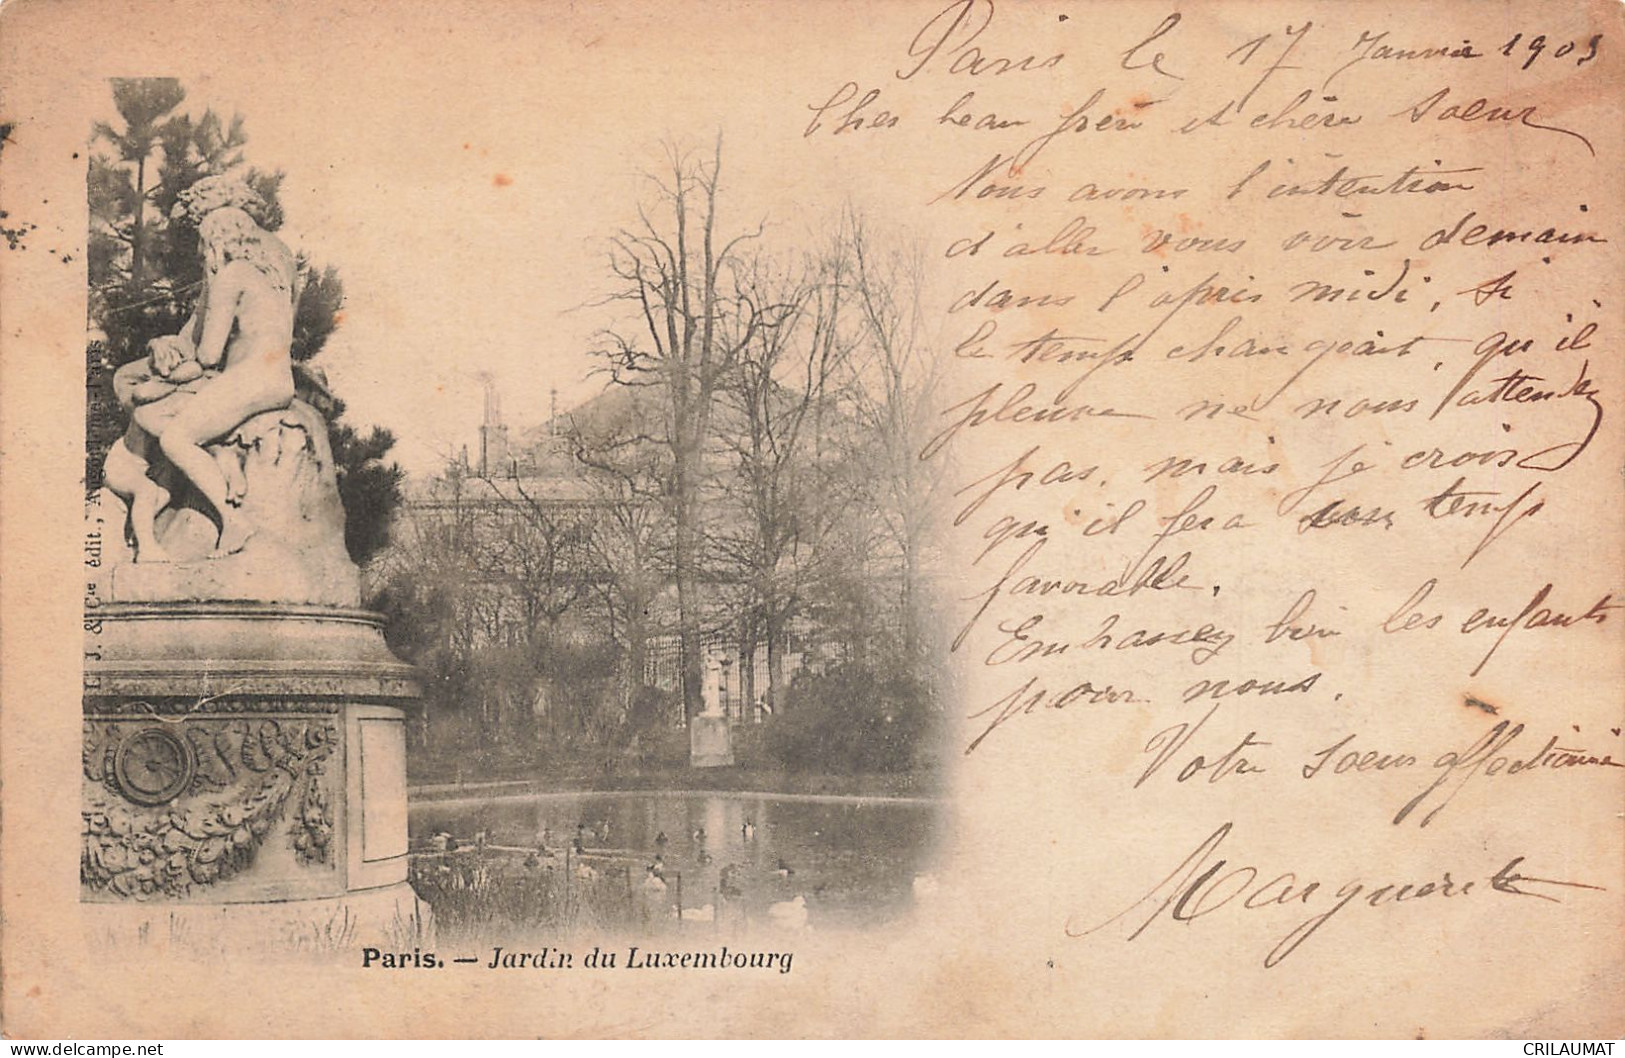 Paris le 17 Janvier 1903
Cher beau frère et chère Soeur
Nous avons l'intention
d'aller vous voir demain
dans l'après midi, si
le temps changeait, qu'il
pleuve ne nous attendez
pas, mais je crois
qu'il fera temps
favorable.
Embrassez bien les enfants
pour nous.
Votre Soeur affectionnée
Marguerite
L. J. & Cie édit., Angoulême-Paris
Paris. — Jardin du Luxembourg
CRILAUMAT